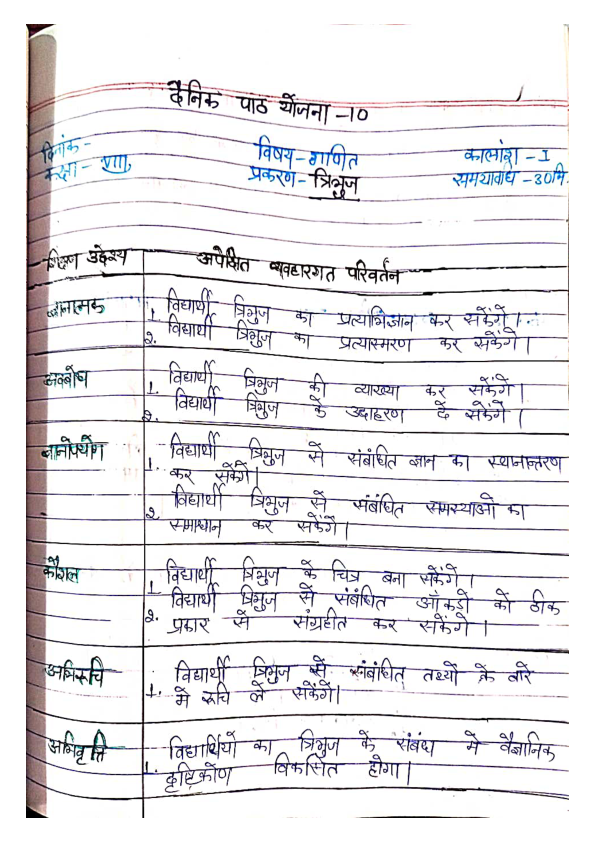 दैनिक पाठ योजना -10
दिनांक - विषय - गणित कालांश - I
कक्षा - VIII प्रकरण - त्रिभुज समयावधि - 30मि.
शिक्षण उद्देश्य अपेक्षित व्यवहारगत परिवर्तन
ज्ञानात्मक 1. विद्यार्थी त्रिभुज का प्रत्याभिज्ञान कर सकेंगे।
2. विद्यार्थी त्रिभुज का प्रत्यास्मरण कर सकेंगे।
अवबोध 1. विद्यार्थी त्रिभुज की व्याख्या कर सकेंगे।
2. विद्यार्थी त्रिभुज के उदाहरण दे सकेंगे।
ज्ञानोपयोग 1. विद्यार्थी त्रिभुज से संबंधित ज्ञान का स्थानान्तरण
कर सकेंगे।
2. विद्यार्थी त्रिभुज से संबंधित समस्याओं का
समाधान कर सकेंगे।
कौशल 1. विद्यार्थी त्रिभुज के चित्र बना सकेंगे।
2. विद्यार्थी त्रिभुज से संबंधित आँकड़ों को ठीक
प्रकार से संग्रहीत कर सकेंगे।
अभिरूचि 1. विद्यार्थी त्रिभुज से संबंधित तथ्यों के बारे
मे रूचि ले सकेंगे।
अभिवृत्ति 1. विद्यार्थियों का त्रिभुज के संबंध मे वैज्ञानिक
दृष्टिकोण विकसित होगा।